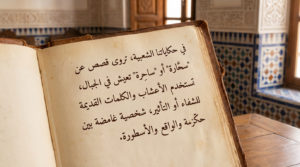 في حكاياتنا الشعبية، تروى قصص عن
"سحّارة" أو "ساحرة" تعيش في الجبال،
تستخدم الأعشاب والكلمات القديمة
للشفاء أو التأثير، شخصية غامضة بين
والواقع والأسطورة.